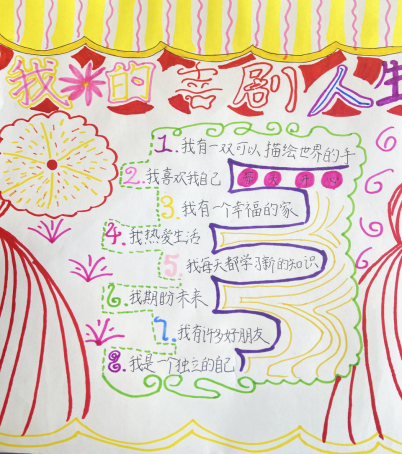 我的喜剧人生
1.我有一双可以描绘世界的手
2.我喜欢我自己 每天开心
3.我有一个幸福的家
4.我热爱生活
5.我每天都学习新的知识
6.我期盼未来
7.我有许多好朋友
8.我是一个独立的自己